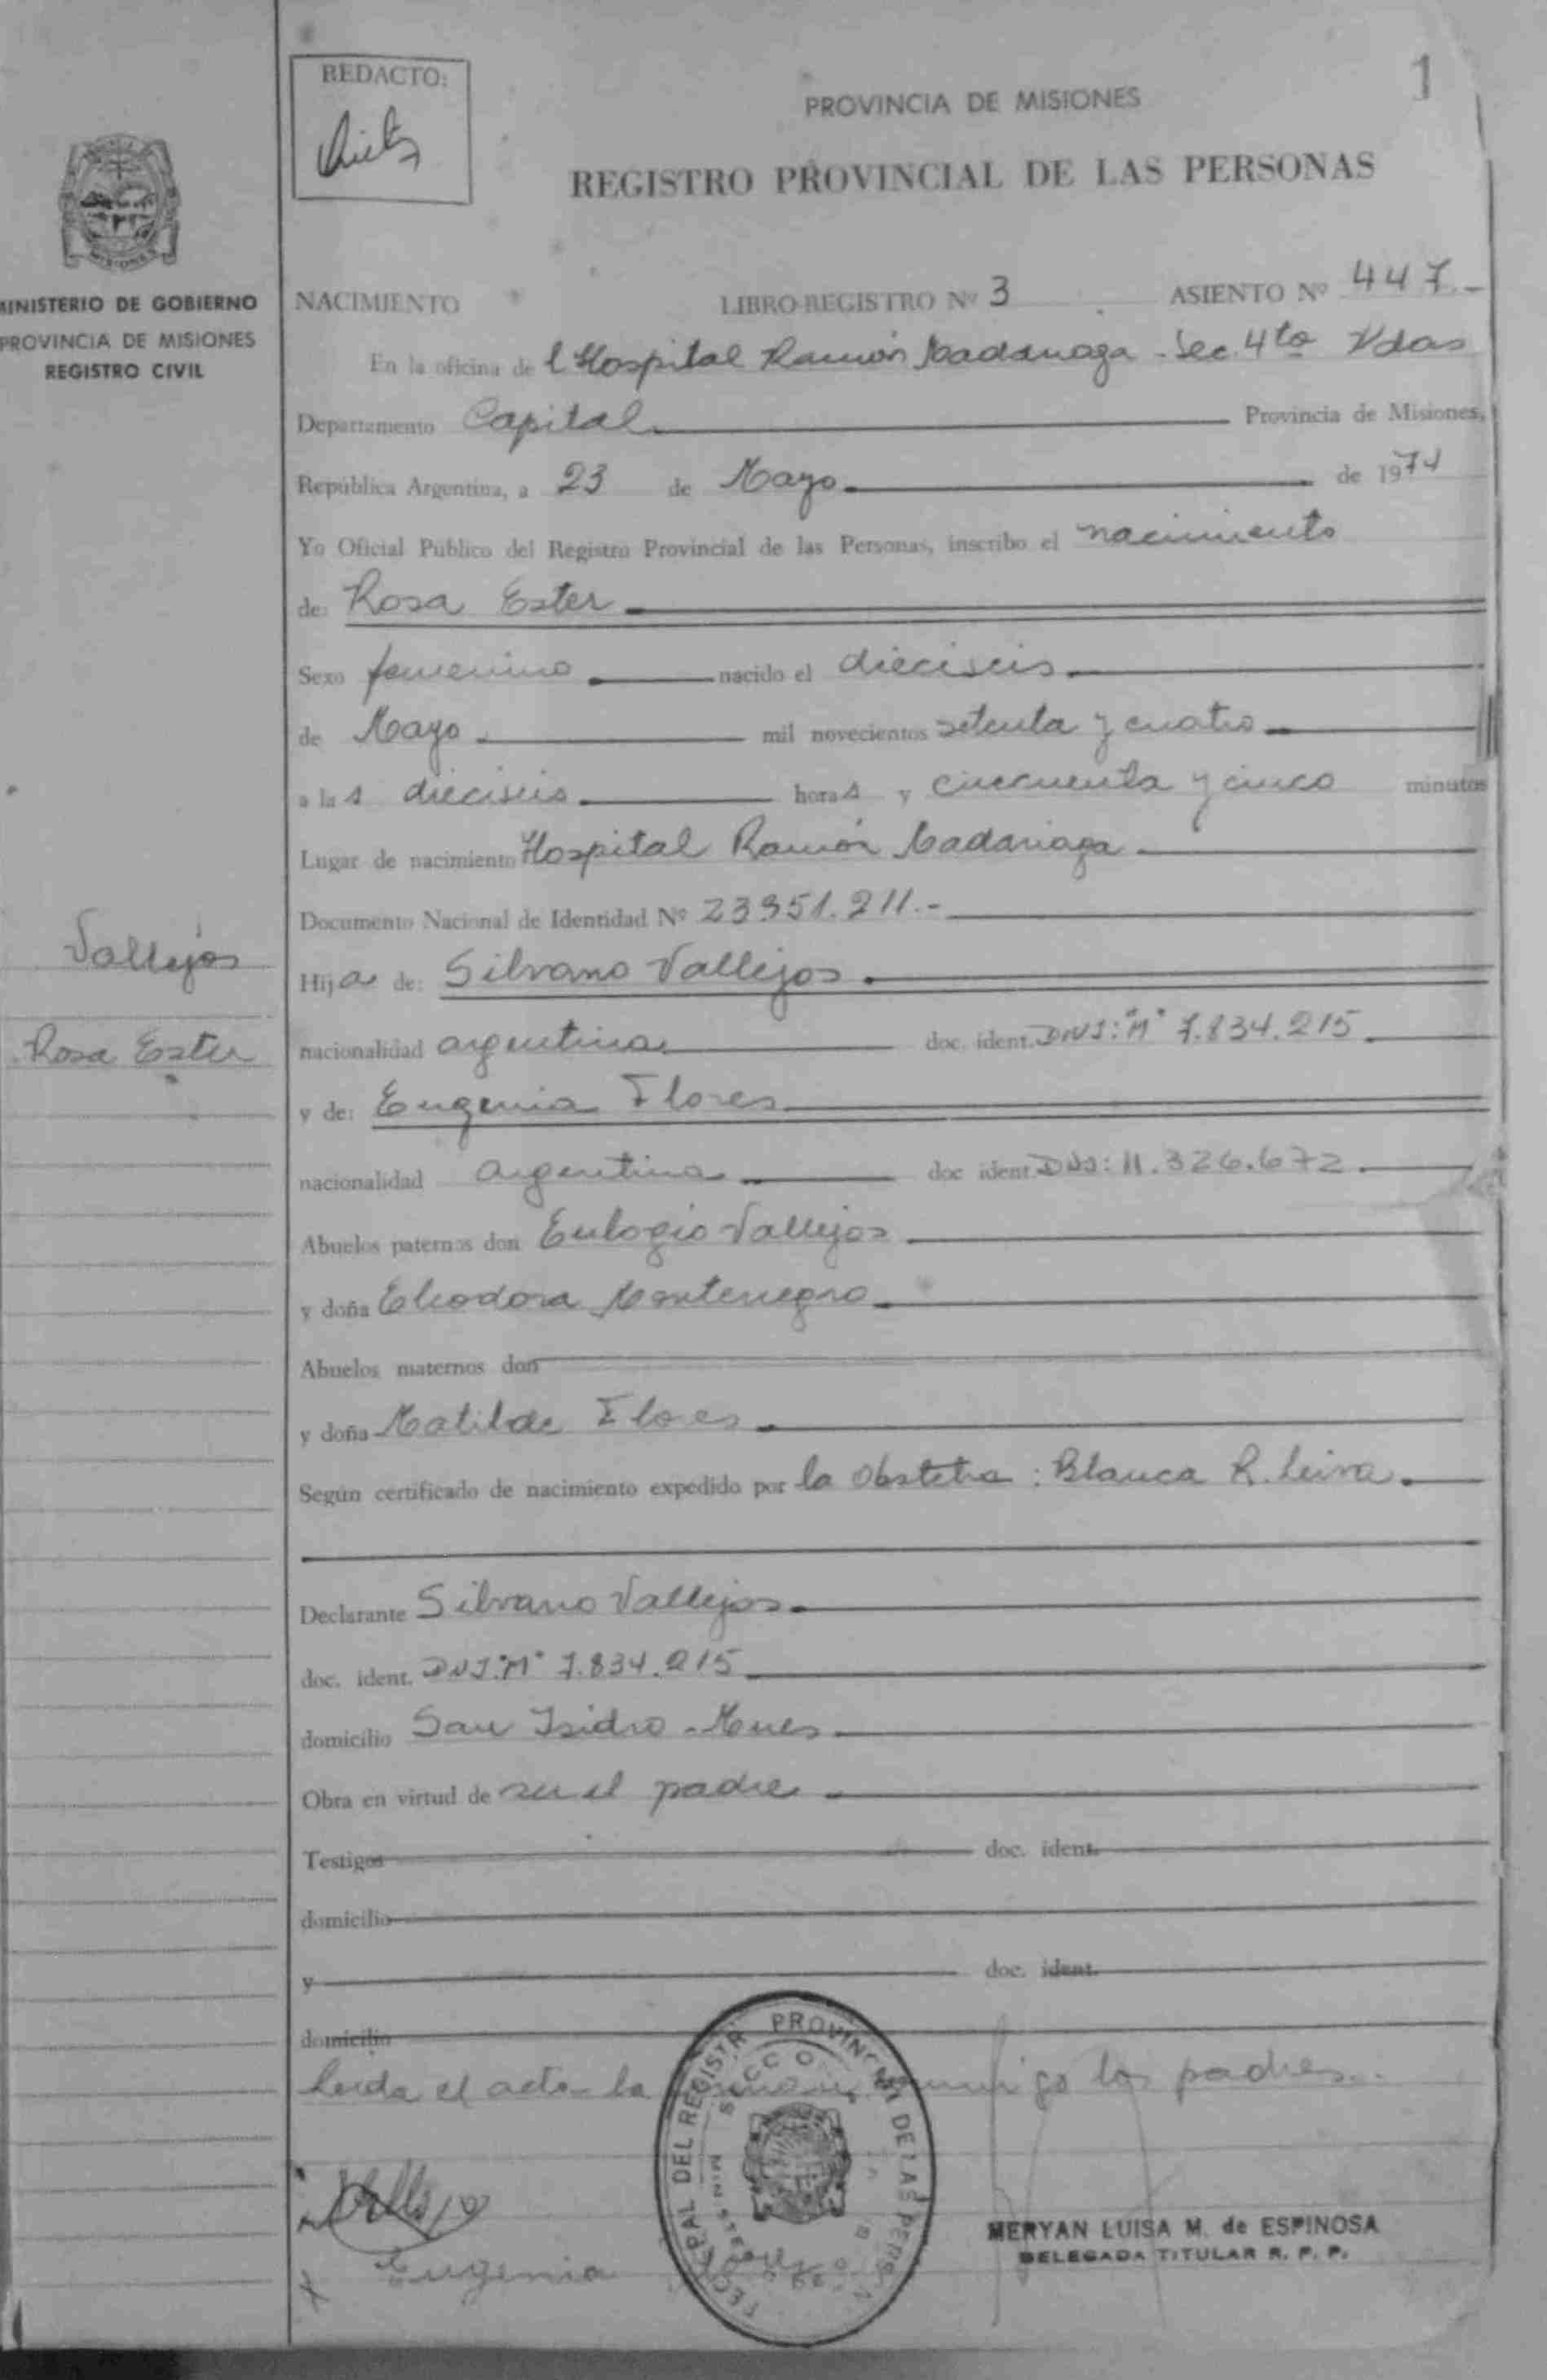 REDACTO:
1
PROVINCIA DE MISIONES
REGISTRO PROVINCIAL DE LAS PERSONAS
MISIONES
MINISTERIO DE GOBIERNO
PROVINCIA DE MISIONES
REGISTRO CIVIL
NACIMIENTO LIBRO-REGISTRO Nº 3 ASIENTO Nº 447-
En la oficina de l Hospital Ramón Madariaga - Sec. 4ta Pdas
Departamento Capital Provincia de Misiones,
República Argentina, a 23 de Mayo de 1974
Yo Oficial Público del Registro Provincial de las Personas, inscribo el nacimiento
de: Rosa Ester
Sexo femenino nacido el dieciseis
de Mayo mil novecientos setenta y cuatro
a las dieciseis horas y cincuenta y cinco minutos
Lugar de nacimiento Hospital Ramón Madariaga
Documento Nacional de Identidad Nº 23951.211.-
Vallejos
Rosa Ester
Hija de: Silvano Vallejos
nacionalidad argentina doc. ident. DNI: "M" 7.834.215
y de: Eugenia Flores
nacionalidad argentina doc ident. DNI: 11.326.672
Abuelos paternos don Eulogio Vallejos
y doña Eleodora Montenegro
Abuelos maternos don
y doña Matilde Flores
Según certificado de nacimiento expedido por la Obstetra: Blanca R. Leiva
Declarante Silvano Vallejos
doc. ident. DNI. "M" 7.834.215
domicilio San Isidro - Mnes
Obra en virtud de ser el padre
Testigos doc. ident.
domicilio
y doc. ident.
domicilio
Leida el acta la conmigo los padres.
PROVINCIAL DE LAS PERS
DEL REGISTR
Vallejo
Eugenia Flores
MERYAN LUISA M. de ESPINOSA
DELEGADA TITULAR R. P. P.